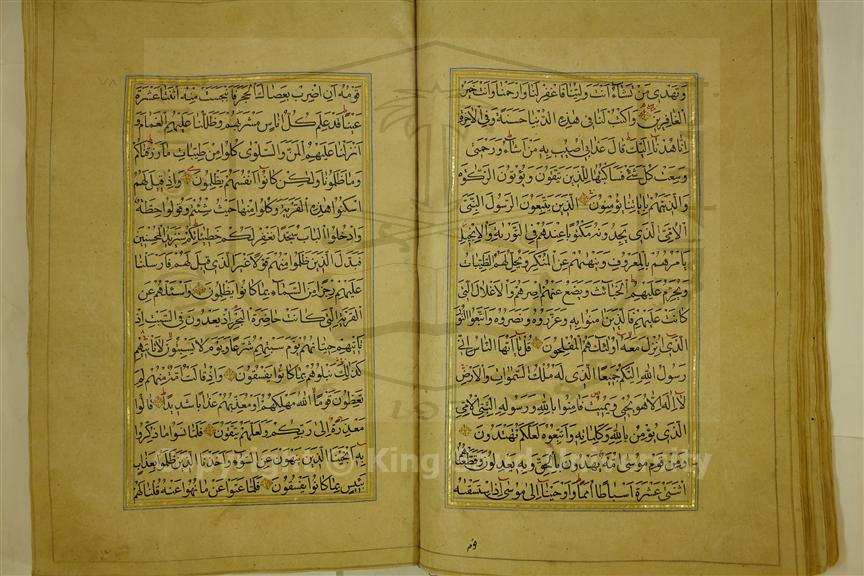 وَتَهْدِي مَنْ تَشَاءُ اَنْتَ وَلِيُّنَا فَاغْفِرْ لَنَا وَارْحَمْنَا وَاَنْتَ خَيْرُ
الْغَافِرِينَ وَاكْتُبْ لَنَا فِي هٰذِهِ الدُّنْيَا حَسَنَةً وَفِي الْاٰخِرَةِ
اِنَّا هُدْنَا اِلَيْكَ قَالَ عَذَابِي اُصِيبُ بِهِ مَنْ اَشَاءُ وَرَحْمَتِي
وَسِعَتْ كُلَّ شَيْءٍ فَسَاَكْتُبُهَا لِلَّذِينَ يَتَّقُونَ وَيُؤْتُونَ الزَّكٰوةَ
وَالَّذِينَ هُمْ بِاٰيَاتِنَا يُؤْمِنُونَ الَّذِينَ يَتَّبِعُونَ الرَّسُولَ النَّبِيَّ
الْاُمِّيَّ الَّذِي يَجِدُونَهُ مَكْتُوبًا عِنْدَهُمْ فِي التَّوْرٰيةِ وَالْاِنْجِيلِ
يَاْمُرُهُمْ بِالْمَعْرُوفِ وَيَنْهٰيهُمْ عَنِ الْمُنْكَرِ وَيُحِلُّ لَهُمُ الطَّيِّبَاتِ
وَيُحَرِّمُ عَلَيْهِمُ الْخَبَائِثَ وَيَضَعُ عَنْهُمْ اِصْرَهُمْ وَالْاَغْلَالَ الَّتِي
كَانَتْ عَلَيْهِمْ فَالَّذِينَ اٰمَنُوا بِهِ وَعَزَّرُوهُ وَنَصَرُوهُ وَاتَّبَعُوا النُّورَ
الَّذِي اُنْزِلَ مَعَهُ اُولٰئِكَ هُمُ الْمُفْلِحُونَ قُلْ يَا اَيُّهَا النَّاسُ اِنِّي
رَسُولُ اللّٰهِ اِلَيْكُمْ جَمِيعًا الَّذِي لَهُ مُلْكُ السَّمٰوَاتِ وَالْاَرْضِ
لَا اِلٰهَ اِلَّا هُوَ يُحْيِي وَيُمِيتُ فَاٰمِنُوا بِاللّٰهِ وَرَسُولِهِ النَّبِيِّ الْاُمِّيِّ
الَّذِي يُؤْمِنُ بِاللّٰهِ وَكَلِمَاتِهِ وَاتَّبِعُوهُ لَعَلَّكُمْ تَهْتَدُونَ
وَمِنْ قَوْمِ مُوسٰى اُمَّةٌ يَهْدُونَ بِالْحَقِّ وَبِهِ يَعْدِلُونَ وَقَطَّعْنَاهُمُ
اثْنَتَيْ عَشْرَةَ اَسْبَاطًا اُمَمًا وَاَوْحَيْنَا اِلٰى مُوسٰى اِذِ اسْتَسْقٰيهُ
قَوْمُهُ اَنِ اضْرِبْ بِعَصَاكَ الْحَجَرَ فَانْبَجَسَتْ مِنْهُ اثْنَتَا عَشْرَةَ
عَيْنًا قَدْ عَلِمَ كُلُّ اُنَاسٍ مَشْرَبَهُمْ وَظَلَّلْنَا عَلَيْهِمُ الْغَمَامَ وَ
اَنْزَلْنَا عَلَيْهِمُ الْمَنَّ وَالسَّلْوٰى كُلُوا مِنْ طَيِّبَاتِ مَا رَزَقْنَاكُمْ
وَمَا ظَلَمُونَا وَلٰكِنْ كَانُوا اَنْفُسَهُمْ يَظْلِمُونَ وَاِذْ قِيلَ لَهُمُ
اسْكُنُوا هٰذِهِ الْقَرْيَةَ وَكُلُوا مِنْهَا حَيْثُ شِئْتُمْ وَقُولُوا حِطَّةٌ
وَادْخُلُوا الْبَابَ سُجَّدًا نَغْفِرْ لَكُمْ خَطِيئَاتِكُمْ سَنَزِيدُ الْمُحْسِنِينَ
فَبَدَّلَ الَّذِينَ ظَلَمُوا مِنْهُمْ قَوْلًا غَيْرَ الَّذِي قِيلَ لَهُمْ فَاَرْسَلْنَا
عَلَيْهِمْ رِجْزًا مِنَ السَّمَاءِ بِمَا كَانُوا يَظْلِمُونَ وَاسْئَلْهُمْ عَنِ
الْقَرْيَةِ الَّتِي كَانَتْ حَاضِرَةَ الْبَحْرِ اِذْ يَعْدُونَ فِي السَّبْتِ اِذْ
تَاْتِيهِمْ حِيتَانُهُمْ يَوْمَ سَبْتِهِمْ شُرَّعًا وَيَوْمَ لَا يَسْبِتُونَ لَا تَاْتِيهِمْ
كَذٰلِكَ نَبْلُوهُمْ بِمَا كَانُوا يَفْسُقُونَ وَاِذْ قَالَتْ اُمَّةٌ مِنْهُمْ لِمَ
تَعِظُونَ قَوْمًا اللّٰهُ مُهْلِكُهُمْ اَوْ مُعَذِّبُهُمْ عَذَابًا شَدِيدًا قَالُوا
مَعْذِرَةً اِلٰى رَبِّكُمْ وَلَعَلَّهُمْ يَتَّقُونَ فَلَمَّا نَسُوا مَا ذُكِّرُوا
بِهِ اَنْجَيْنَا الَّذِينَ يَنْهَوْنَ عَنِ السُّوءِ وَاَخَذْنَا الَّذِينَ ظَلَمُوا بِعَذَابٍ
بَئِيسٍ بِمَا كَانُوا يَفْسُقُونَ فَلَمَّا عَتَوْا عَنْ مَا نُهُوا عَنْهُ قُلْنَا لَهُمْ
٧٨
Copyright © King Saud University